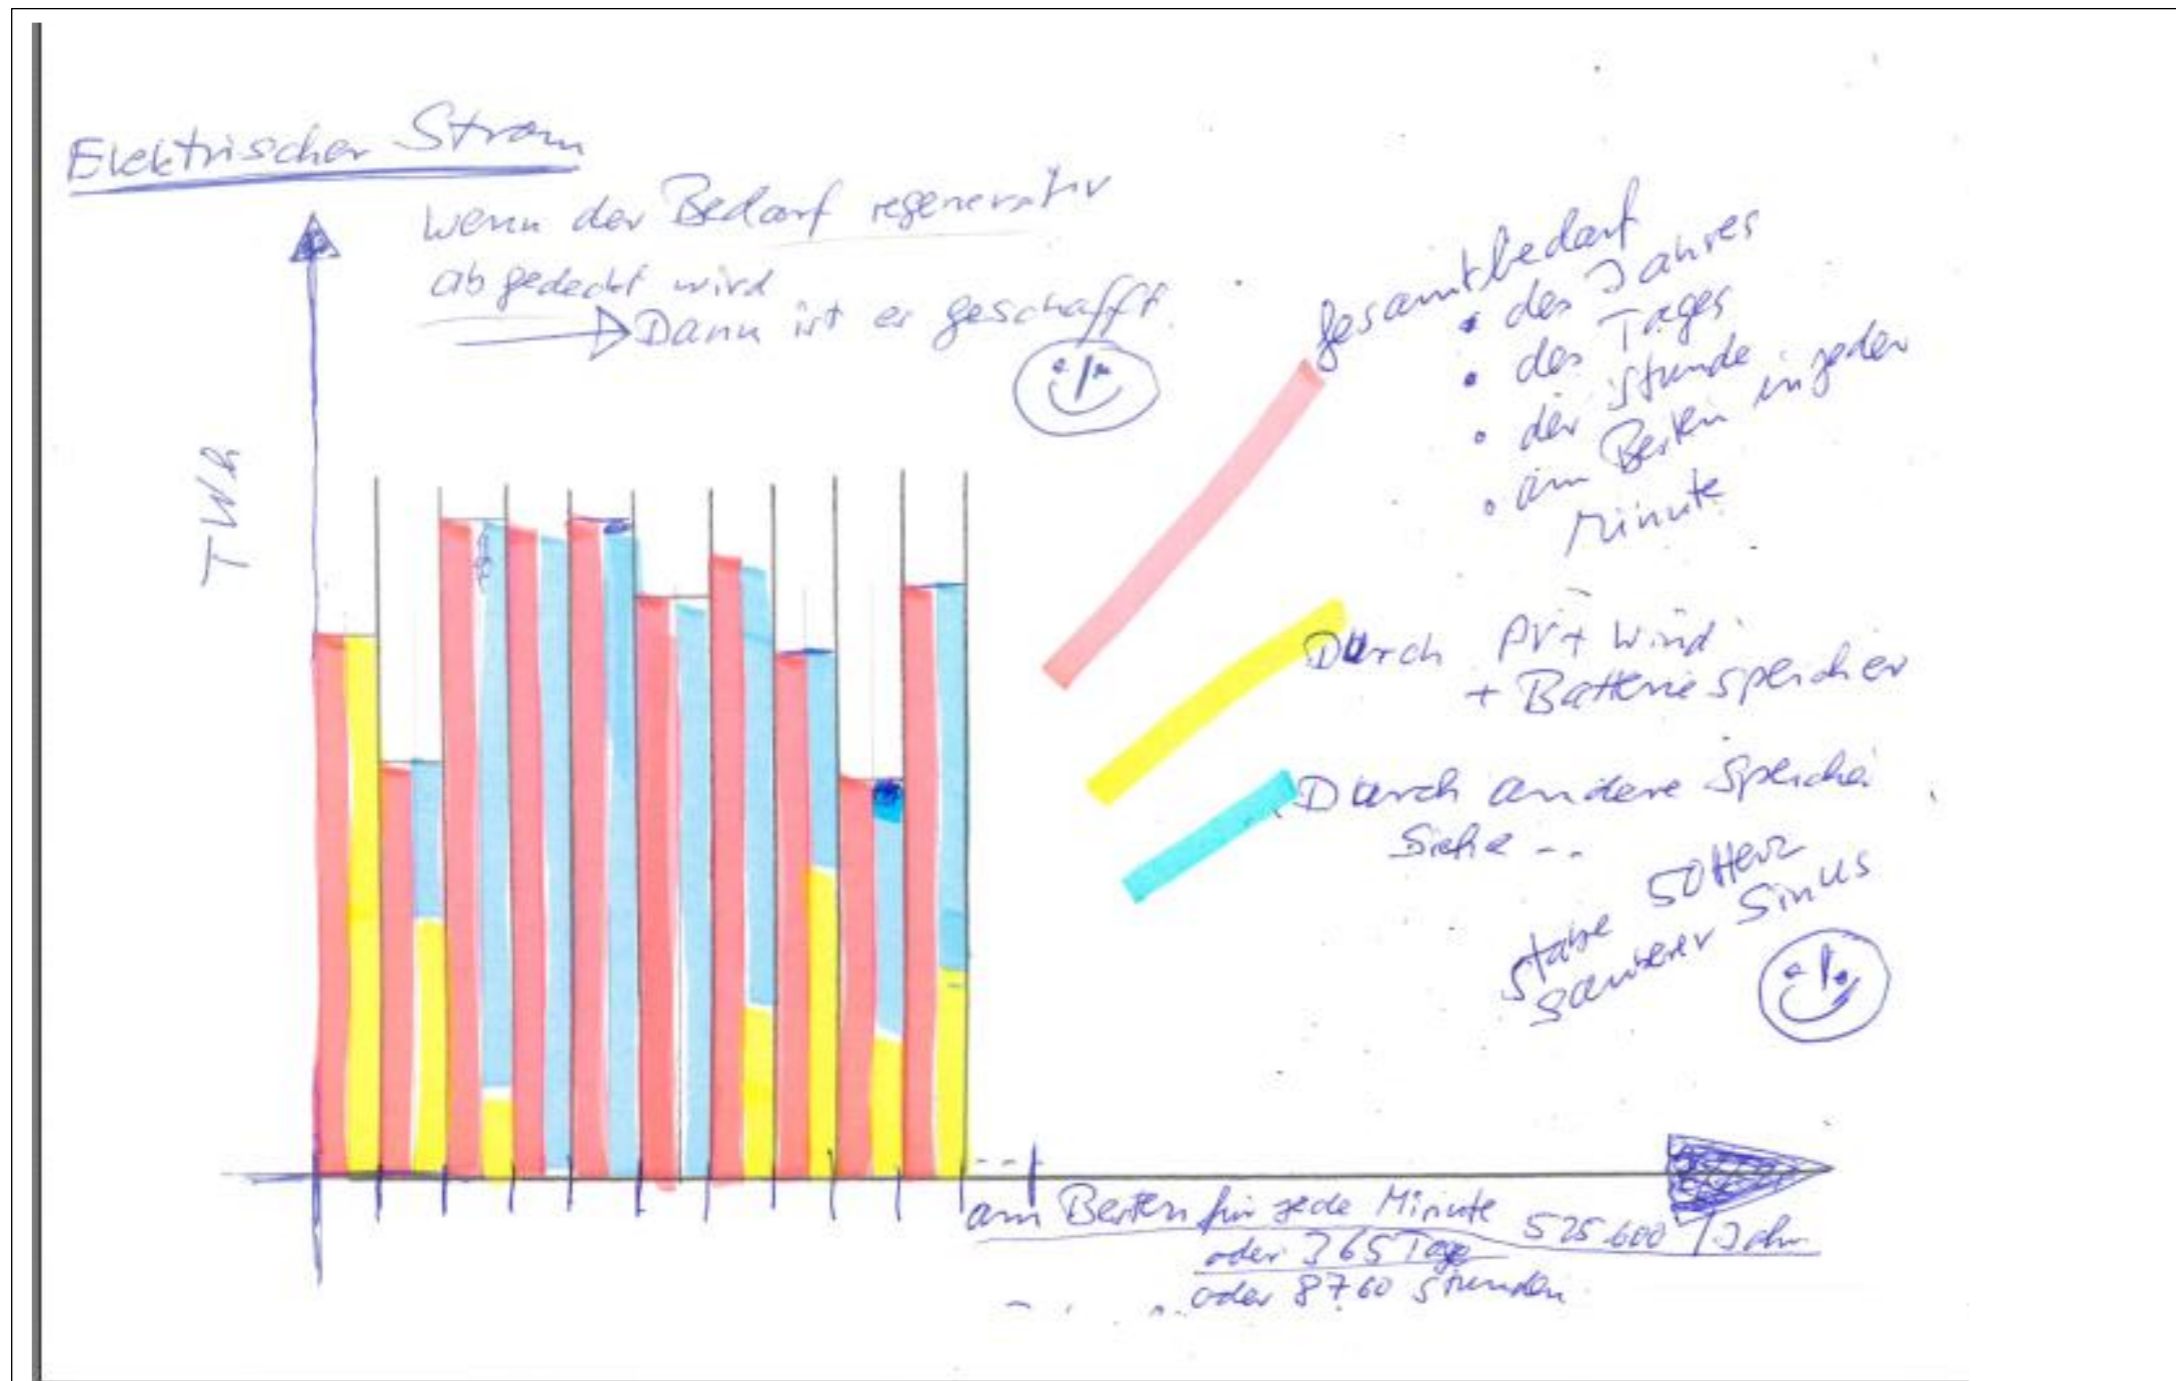 Elektrischer Strom
wenn der Bedarf regenerativ
abgedeckt wird
Dann ist es geschafft
TWh
Gesamtbedarf
• des Jahres
• des Tages
• der Stunde
• am Besten in jeder
Minute
Durch PV + Wind
+ Batteriespeicher
Durch andere Speicher
Siehe --
50 Herz
sauberer Sinus
am Besten für jede Minute 525.600 / Jahr
oder 365 Tage
oder 8760 Stunden